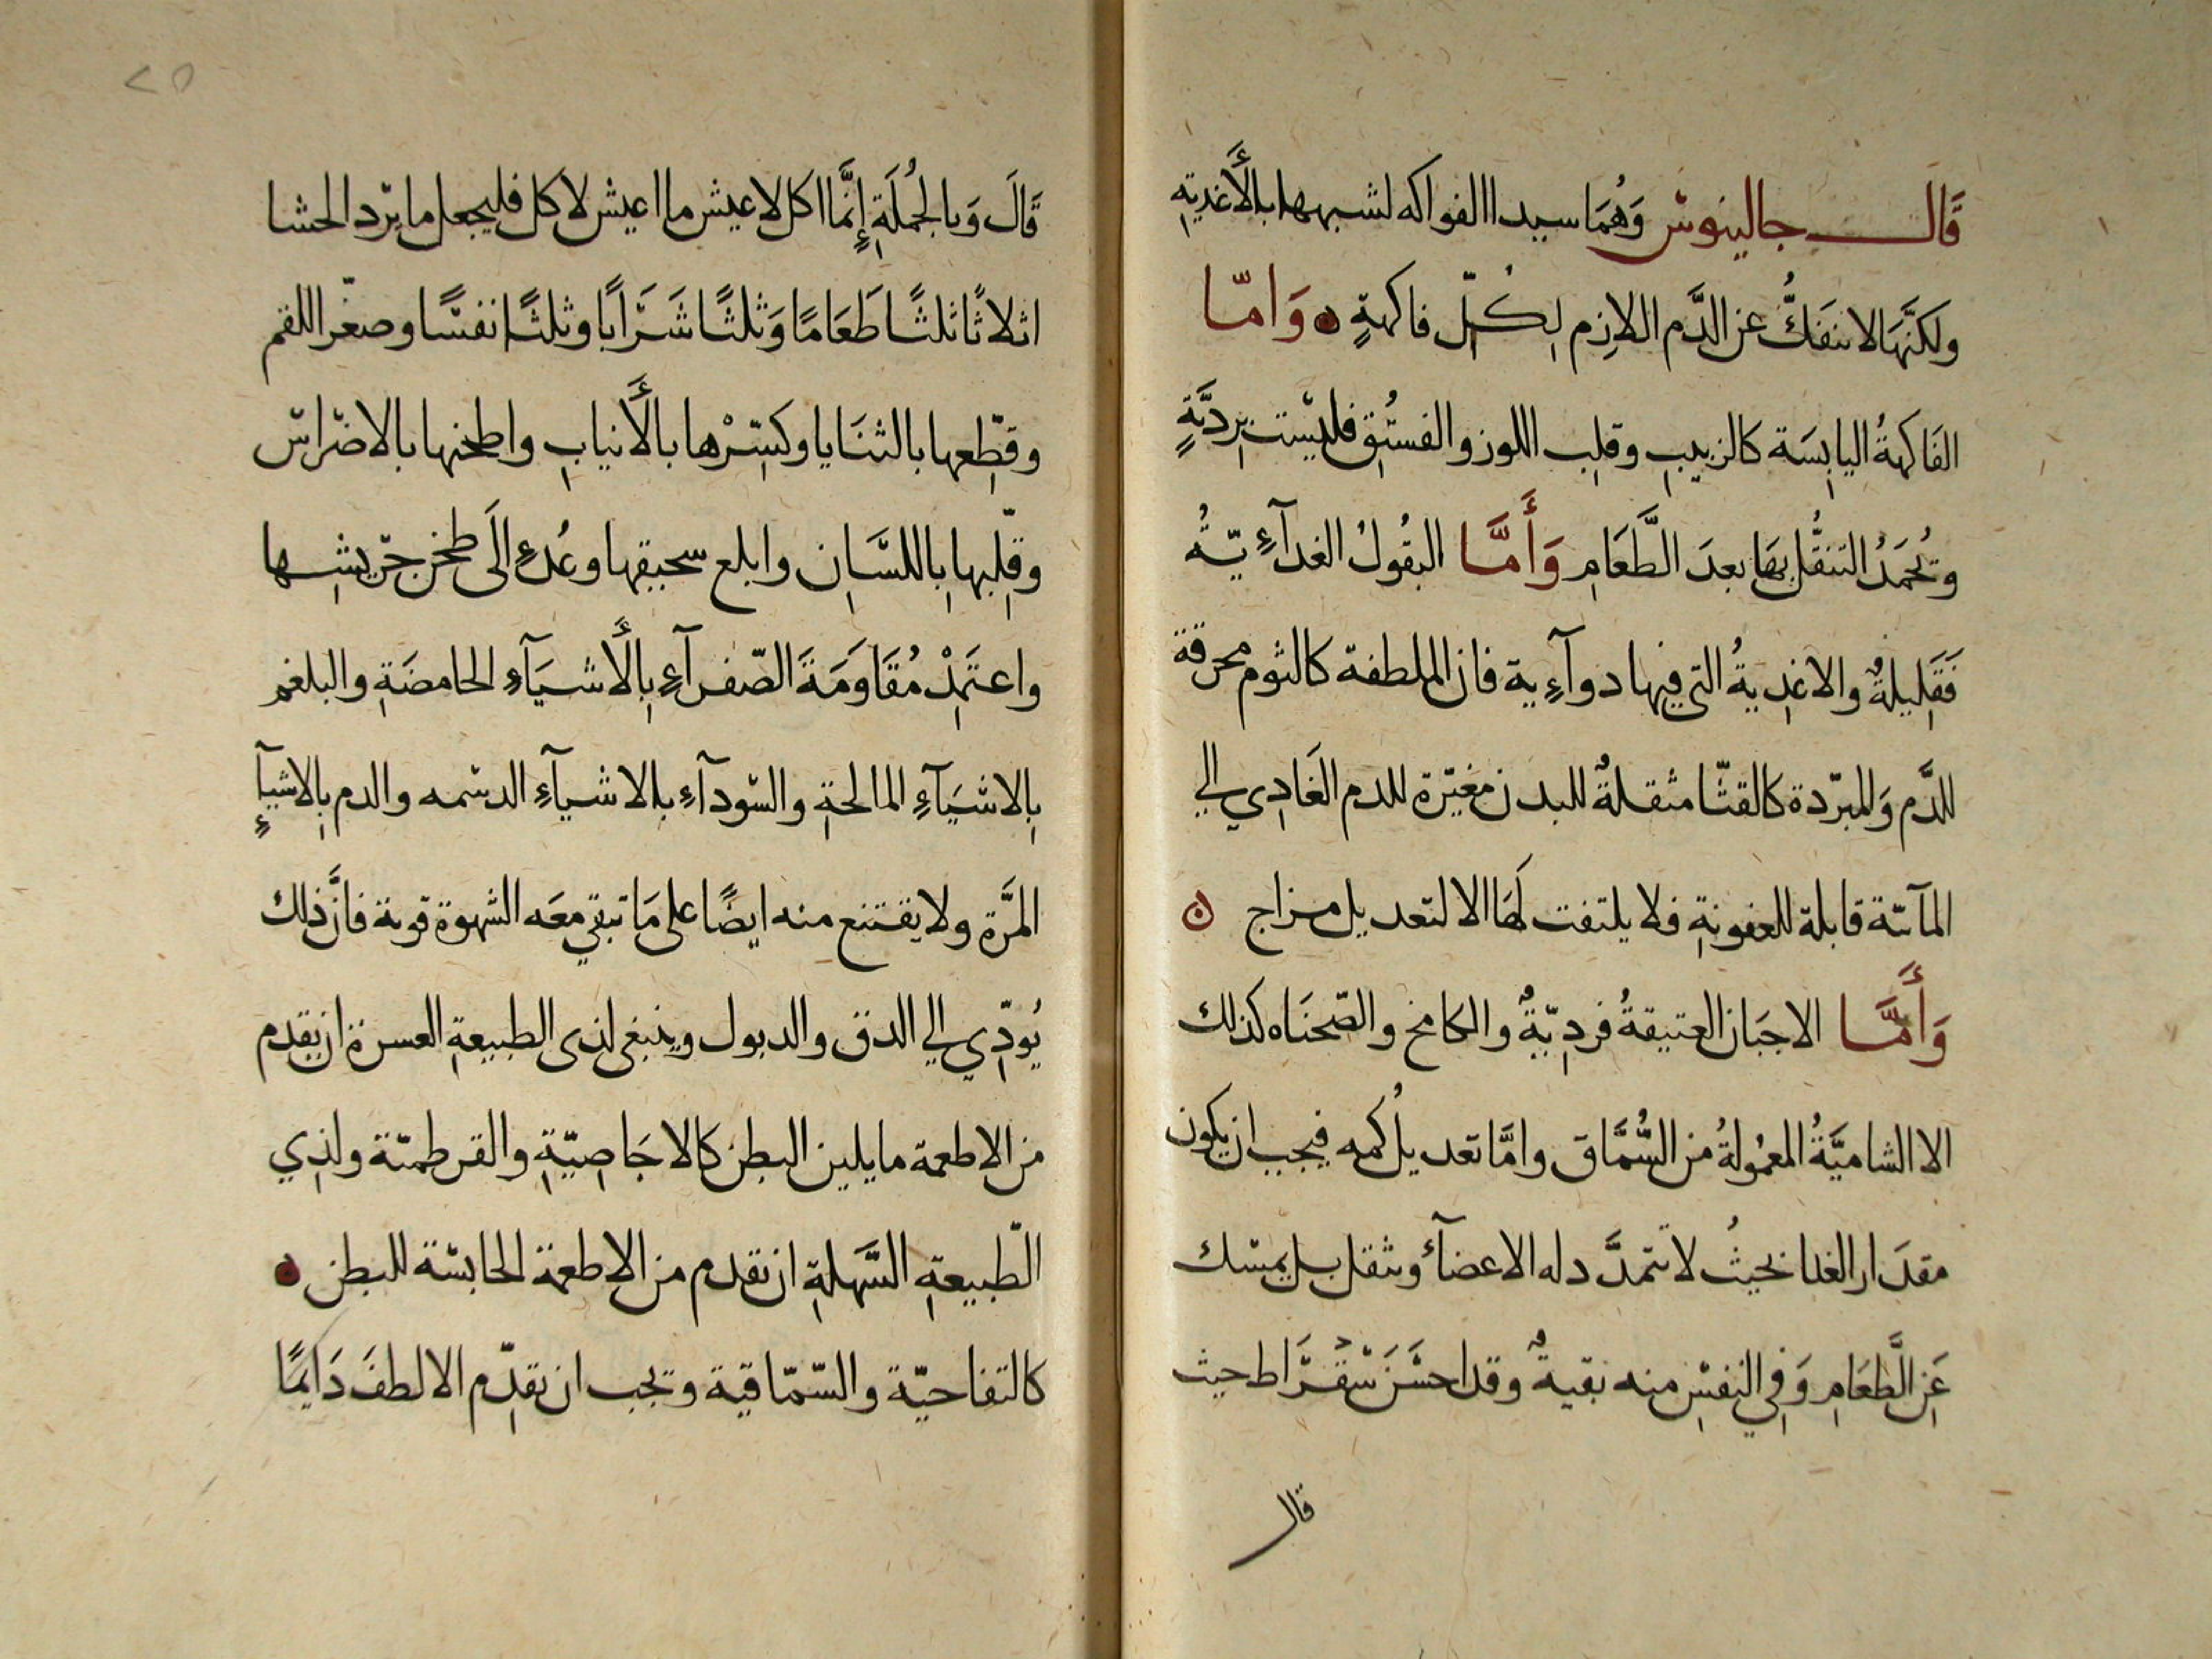 قَالَ جالينوس وَهُمَا سيدا الفواكه لشبهها بالأَغذيةِ
ولكنَّهَا لا تنفَكُّ عن الدَّم اللازِم لِكُلّ فاكهةٍ وَامّا
الفَاكهةُ اليابِسَة كالزبيبِ وقلِب اللوز والفستُق فليْست بِرديَّةٍ
وتُحمَدُ التنقُّل بهَا بعدَ الطَّعَامِ وَأَمَّا البقُولُ الغدآءِيّةُ
فَقَلِيلةٌ والاغذِيةُ التي فيها دوآءِية فان الملطفة كالثوم محرقة
للدَّم وَالمبرّدة كالقثّا مثقلةٌ للبدن مغيّرة للدم الغَادِي الي
المآئيّة قابلة للعفونةِ فلا يلتفت لهَا الا لتعديل مزاج
وَأَمَّا الاجبَان العتيقةُ فردِيّةٌ والكامخ والصّحنَاه كذلك
الا الشاميَّةُ المعمُولةُ من السُّمَّاق وامَّا تعديلُ كمه فيجب ان يكون
مقدَار الغذا بحيثُ لا تتمدَّد له الاعضآء وتثقل بل يمسك
عَنِ الطَّعَامِ وَفِي النفسِ منه بقيةٌ وقد احسَنَ سُقْرَاط حيث
قال
٢٥
قَالَ وَبالجُملَةِ إِنَّما اكل لاعيش ما اعيش لاكل فليجعل ما يرّد الحشا
اثلاثًا ثلثًا طَعَامًا وَثلثًا شَرَابًا وثلثًا نفسًا وصغّر اللقم
وقطِّعها بالثنَايا وكسِّرْها بالأَنيابِ واطحنها بالاضراس
وقلِّبها باللسَّان وابلع سحيقها وعُدء الَى طحن جرّيشِها
واعتَمِدْ مُقَاوَمَةَ الصّفرآءِ بِالأَشيَآءِ الحامضَةِ والبلغم
بِالاشيَآءِ المالحةِ والسّودآءِ بالاشيآءِ الدسمه والدم بِالاشيآءِ
المرَّة ولا يقتنع منه ايضًا على مَا تبقي معَه الشهوة قوية فانَّ ذلك
يُودِّي الي الدق والدبول وينبغي لذى الطبيعةِ العسرة ان يقدم
من الاطعمة ما يلين البطن كالاجَاصِيّةِ والقرطميّة ولذِي
الطّبيعةِ السَّهلةِ ان يقدم من الاطعمة الحابسة للبطن
كالتفاحيّة والسّمّاقية وتجب ان يقدِّم الالطفَ دَايمًا